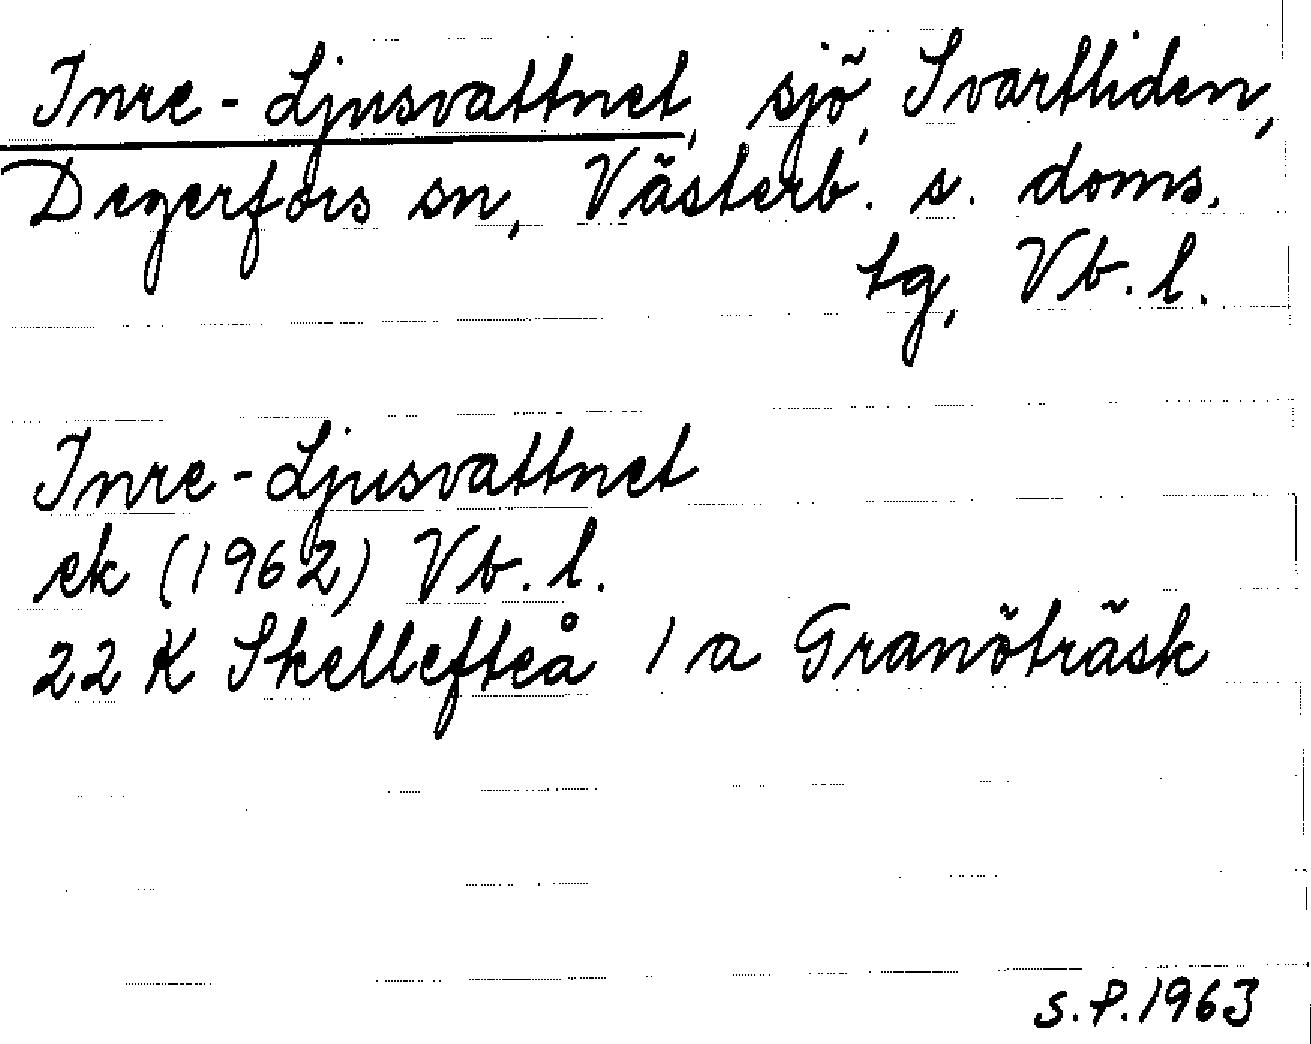 Inre-Ljusvattnet, sjö, Svartliden,
Degerfors sn, Västerb. s. doms.
tg, Vb. l.
Inre-Ljusvattnet
ek (1962) Vb. l.
22 K Skellefteå 1 a Granöträsk
S.P. 1963